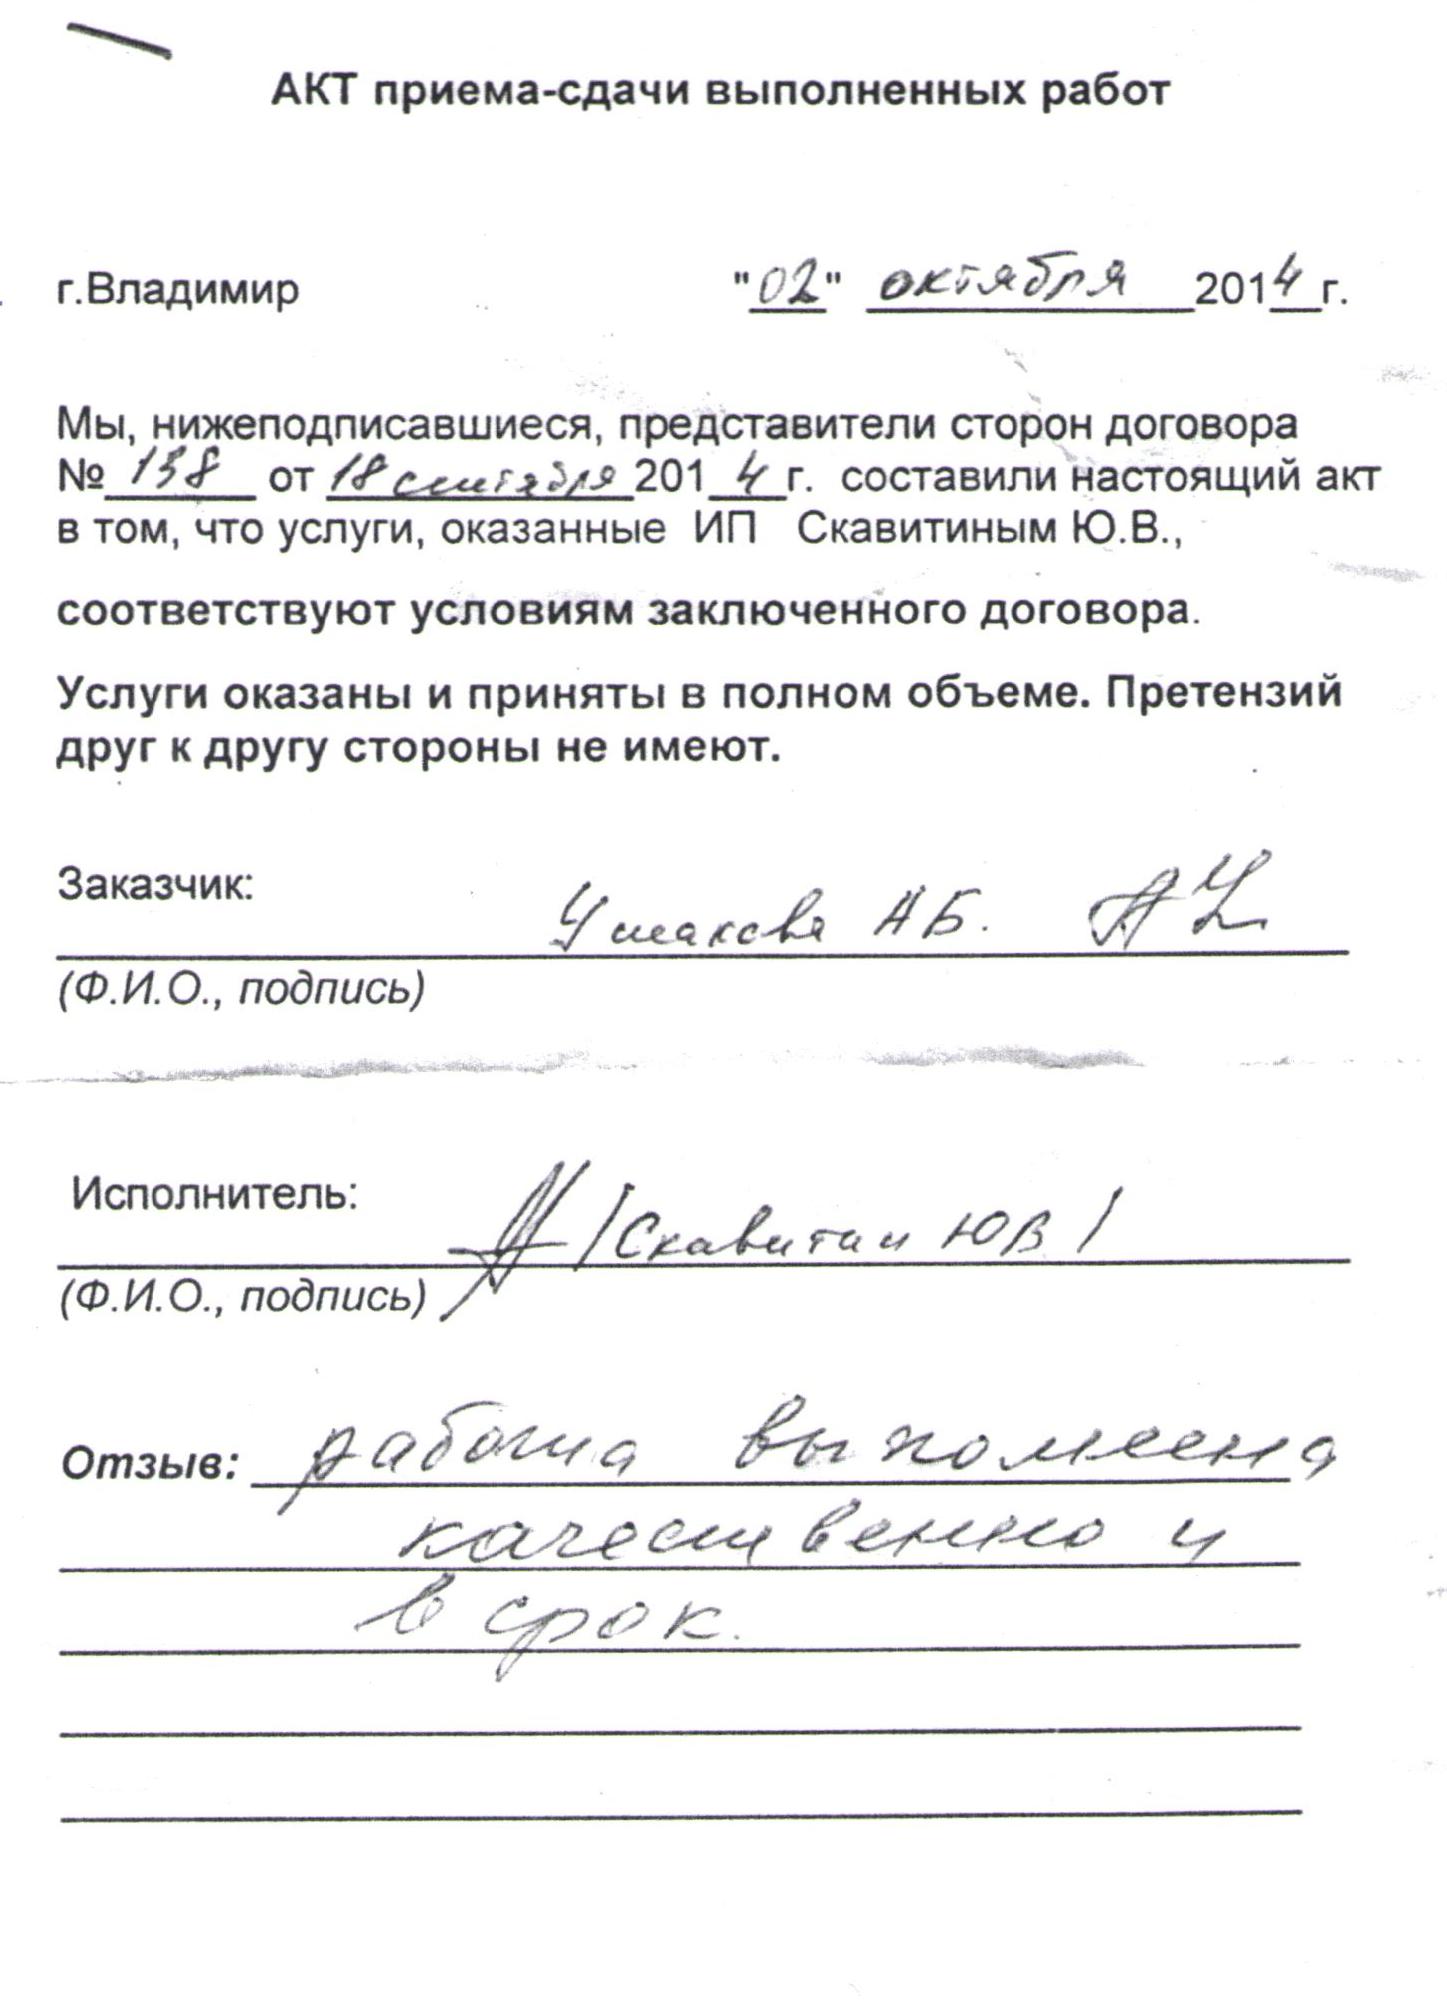 АКТ приема-сдачи выполненных работ
г.Владимир "02" октября 2014 г.
Мы, нижеподписавшиеся, представители сторон договора
№ 138 от 18 сентября 2014 г. составили настоящий акт
в том, что услуги, оказанные ИП Скавитиным Ю.В.,
соответствуют условиям заключенного договора.
Услуги оказаны и приняты в полном объеме. Претензий
друг к другу стороны не имеют.
Заказчик:
Ушакова А Б.
(Ф.И.О., подпись)
Исполнитель:
/Скавитин ЮВ/
(Ф.И.О., подпись)
Отзыв: работа выполнена
качественно и
в срок.